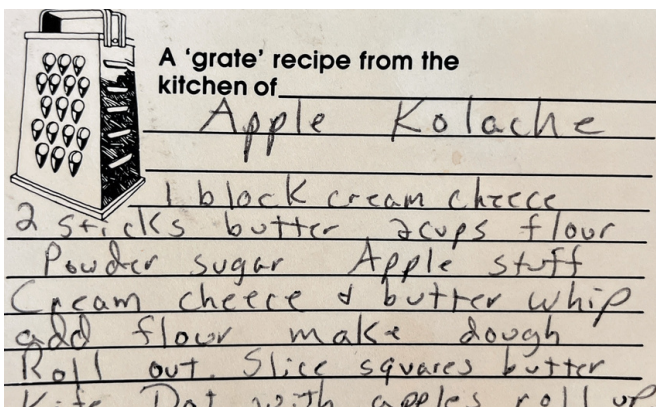 A 'grate' recipe from the
kitchen of
Apple Kolache
1 block cream cheece
2 sticks butter 2cups flour
Powder sugar Apple stuff
Cream cheece & butter whip
add flour make dough
Roll out. Slice squares butter
Dot with apples roll up